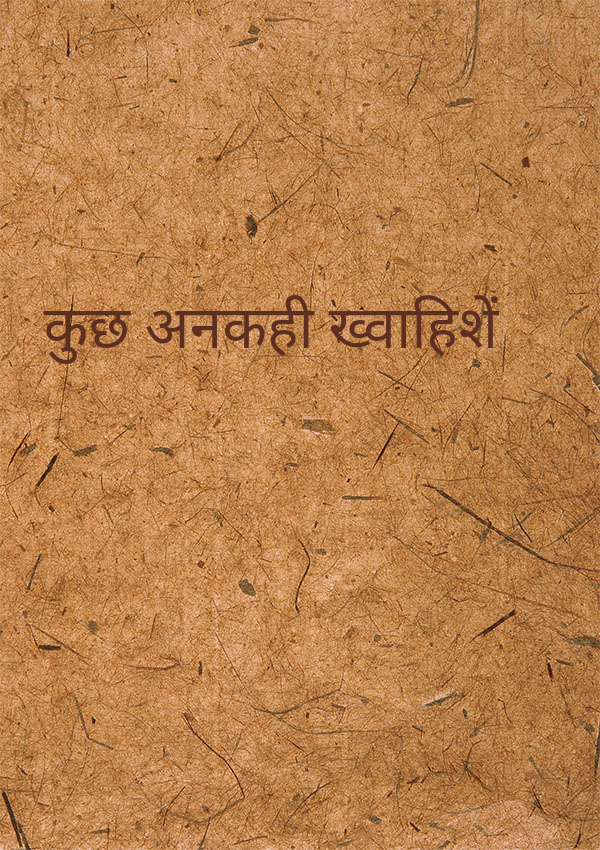 कुछ अनकही ख्वाहिशें